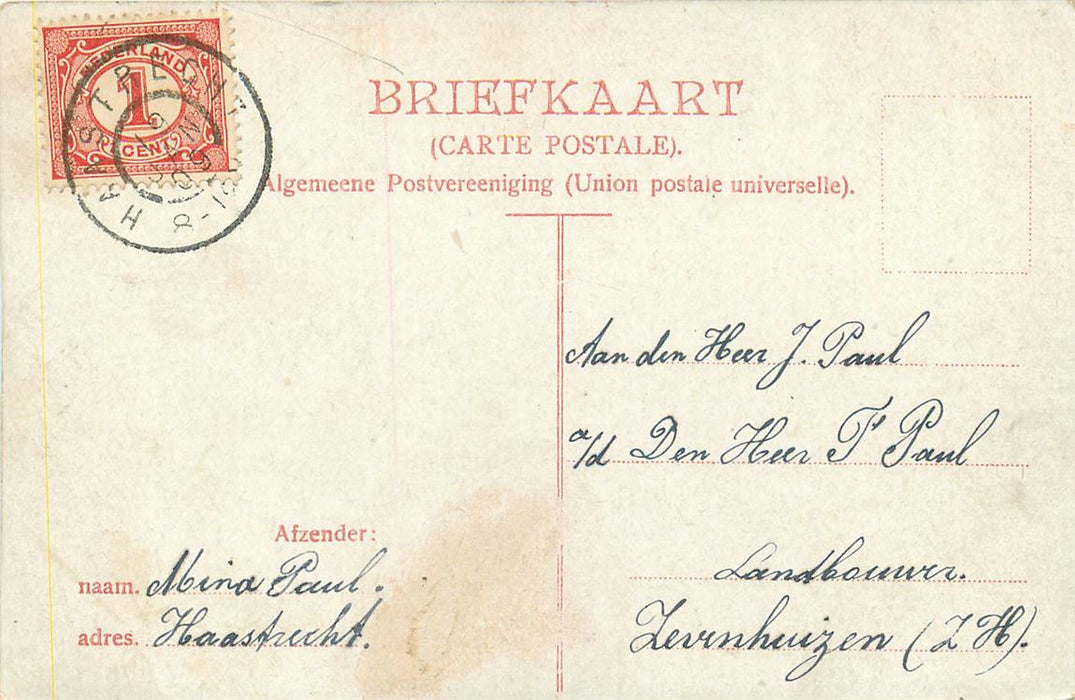 NEDERLAND
1
CENT
HAASTRECHT
8-12
BRIEFKAART
(CARTE POSTALE).
Algemeene Postvereeniging (Union postale universelle).
Aan den Heer J. Paul
a/d Den Heer P Paul
Landbouwer.
Zevenhuizen (Z H).
Afzender:
naam. Mina Paul.
adres. Haastrecht.